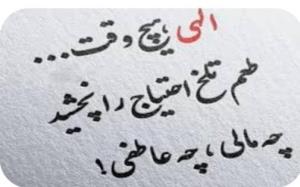 الهی هیچ وقت...
طعم تلخ احتیاج را نچشید
چه مالی، چه عاطفی!